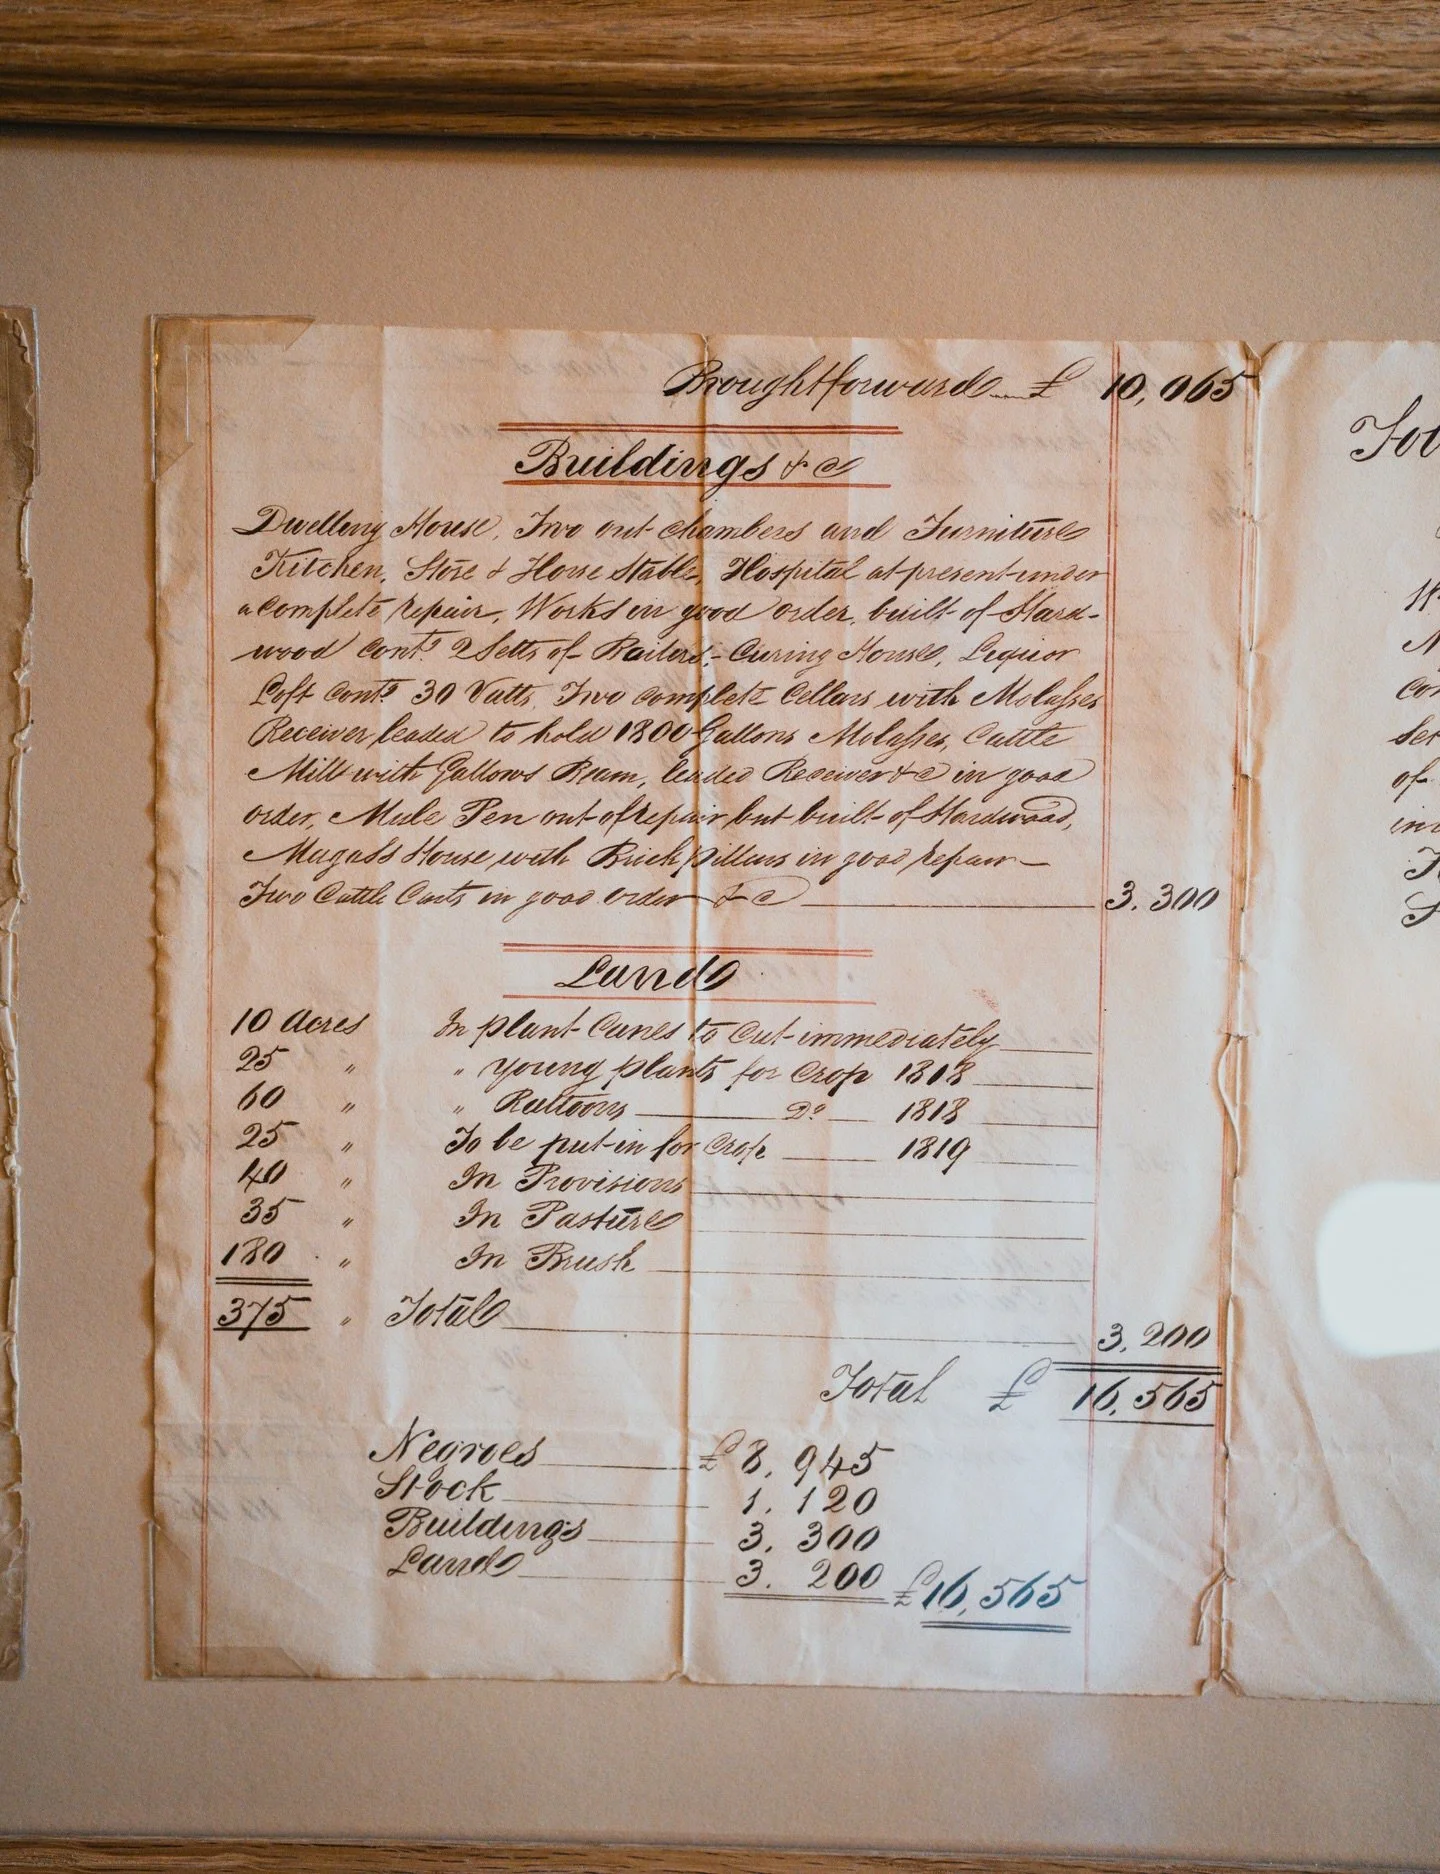 Brought forward £ 10,065
Buildings & c
Dwelling House, Two out-chambers and Furniture
Kitchen, Store & Horse Stable, Hospital at present under
a complete repair, Works in good order, built of Hard-
wood Cont.g 2 Setts of Boilers, - Curing House, Liquor
Loft Cont.g 30 Vatts, Two complete Cellars with Molasses
Receiver leaded to hold 1800 Gallons Molasses, Cattle
Mill with Gallows Beam, leaded Receiver & c in good
order, Mule Pen out of repair but built of Hardwood,
Magass House with Brick pillars in good repair —
Two Cattle Carts in good order & c 3.300
Land
10 Acres In plant Canes to Cut immediately
25 " " young plants for Crop 1818
60 " " Rattoons Do 1818
25 " To be put in for Crop 1819
40 " In Provisions
35 " In Pasture
180 " In Brush
375 " Total 3.200
Total £ 16,565
Negroes £ 8.945
Stock 1.120
Buildings 3.300
Land 3.200 £16,565